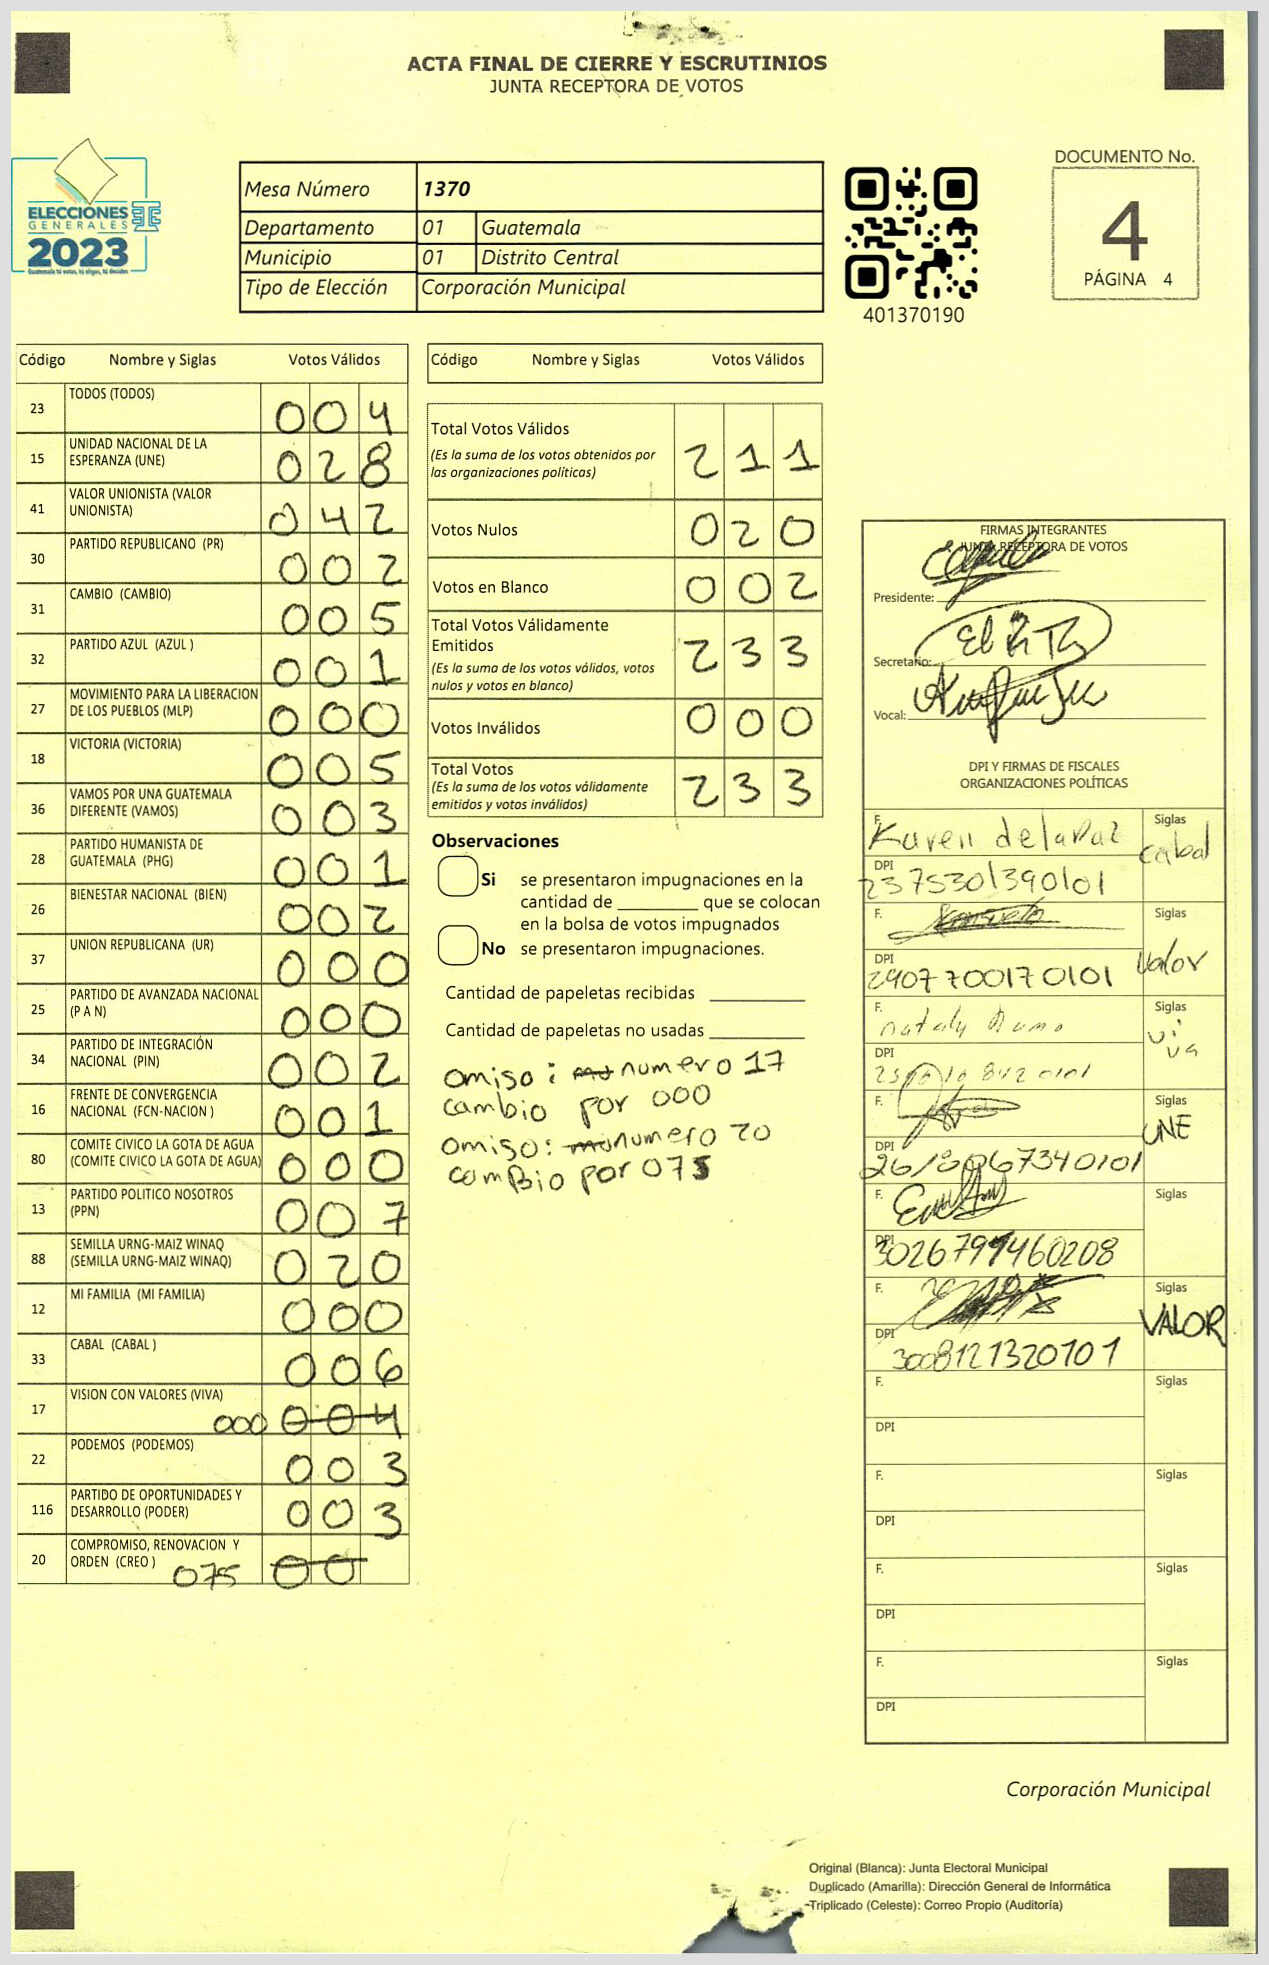 ACTA FINAL DE CIERRE Y ESCRUTINIOS
JUNTA RECEPTORA DE VOTOS
ELECCIONES
GENERALES
2023
Guatemala tú votas, tú eliges, tú decides
Mesa Número 1370
Departamento 01 Guatemala
Municipio 01 Distrito Central
Tipo de Elección Corporación Municipal
401370190
DOCUMENTO No.
4
PÁGINA 4
Código Nombre y Siglas Votos Válidos
23 TODOS (TODOS) 004
15 UNIDAD NACIONAL DE LA ESPERANZA (UNE) 028
41 VALOR UNIONISTA (VALOR UNIONISTA) 042
30 PARTIDO REPUBLICANO (PR) 002
31 CAMBIO (CAMBIO) 005
32 PARTIDO AZUL (AZUL ) 001
27 MOVIMIENTO PARA LA LIBERACION DE LOS PUEBLOS (MLP) 000
18 VICTORIA (VICTORIA) 005
36 VAMOS POR UNA GUATEMALA DIFERENTE (VAMOS) 003
28 PARTIDO HUMANISTA DE GUATEMALA (PHG) 001
26 BIENESTAR NACIONAL (BIEN) 002
37 UNION REPUBLICANA (UR) 000
25 PARTIDO DE AVANZADA NACIONAL (P A N) 000
34 PARTIDO DE INTEGRACIÓN NACIONAL (PIN) 002
16 FRENTE DE CONVERGENCIA NACIONAL (FCN-NACION ) 001
80 COMITE CIVICO LA GOTA DE AGUA (COMITE CIVICO LA GOTA DE AGUA) 000
13 PARTIDO POLITICO NOSOTROS (PPN) 007
88 SEMILLA URNG-MAIZ WINAQ (SEMILLA URNG-MAIZ WINAQ) 020
12 MI FAMILIA (MI FAMILIA) 000
33 CABAL (CABAL ) 006
17 VISION CON VALORES (VIVA) 000 004
22 PODEMOS (PODEMOS) 003
116 PARTIDO DE OPORTUNIDADES Y DESARROLLO (PODER) 003
20 COMPROMISO, RENOVACION Y ORDEN (CREO ) 075 00
Código Nombre y Siglas Votos Válidos
Total Votos Válidos 211
(Es la suma de los votos obtenidos por
las organizaciones políticas)
Votos Nulos 020
Votos en Blanco 002
Total Votos Válidamente
Emitidos 233
(Es la suma de los votos válidos, votos
nulos y votos en blanco)
Votos Inválidos 000
Total Votos 233
(Es la suma de los votos válidamente
emitidos y votos inválidos)
Observaciones
Si se presentaron impugnaciones en la
cantidad de ________ que se colocan
en la bolsa de votos impugnados
No se presentaron impugnaciones.
Cantidad de papeletas recibidas
Cantidad de papeletas no usadas
omiso : numero 17
cambio por 000
omiso: numero 20
cambio por 075
FIRMAS INTEGRANTES
JUNTA RECEPTORA DE VOTOS
Presidente:
Secretario:
Vocal:
DPI Y FIRMAS DE FISCALES
ORGANIZACIONES POLÍTICAS
F. Karen de la Paz Siglas cabal
DPI 2375301390101
F. Siglas Valor
DPI 2907700170101
F. nataly Siglas viva
DPI
F. Siglas UNE
DPI
F. Siglas
DPI
F. Siglas VALOR
DPI 3008121320101
F. Siglas
DPI
F. Siglas
DPI
F. Siglas
DPI
F. Siglas
DPI
Corporación Municipal
Original (Blanca): Junta Electoral Municipal
Duplicado (Amarilla): Dirección General de Informática
Triplicado (Celeste): Correo Propio (Auditoría)